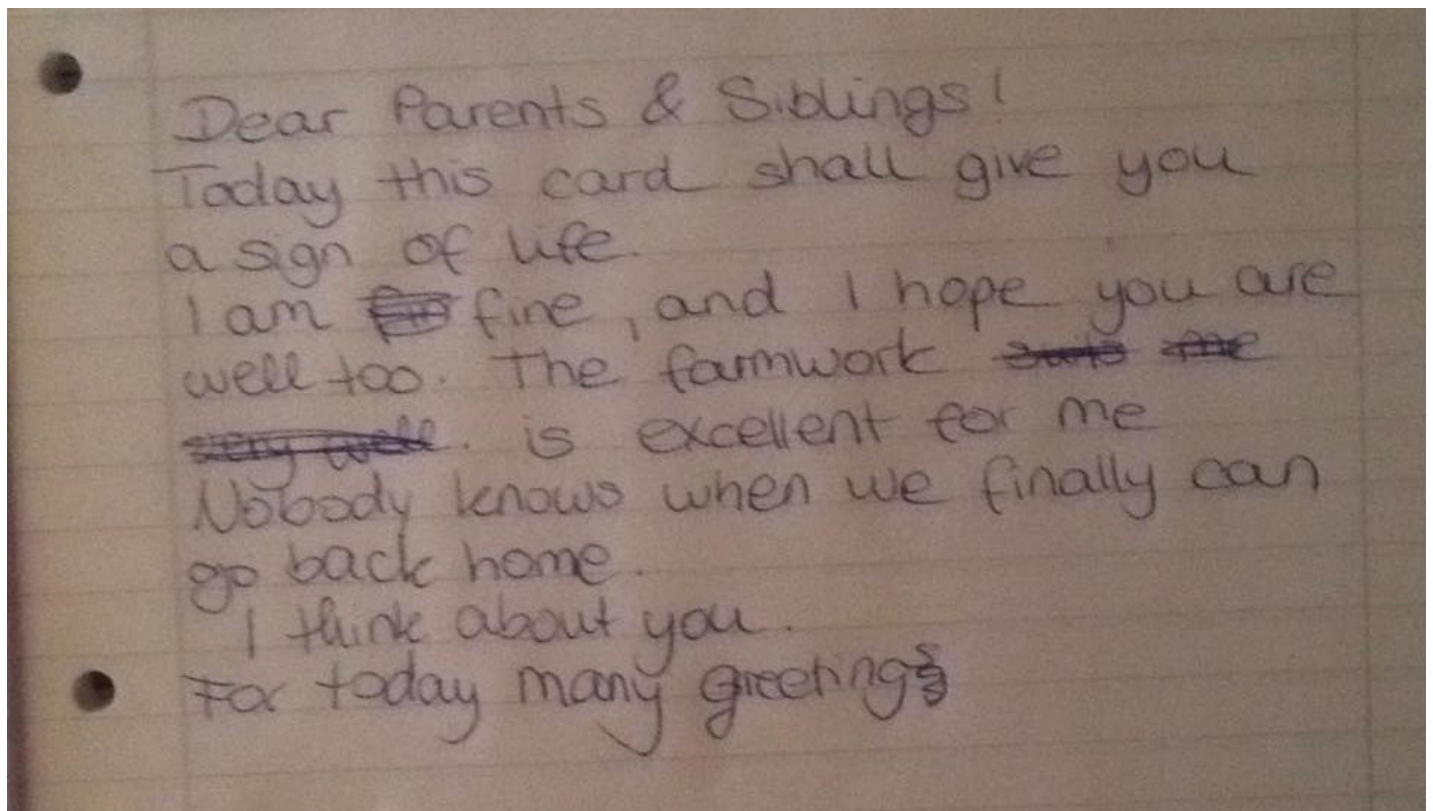 Dear Parents & Siblings!
Today this card shall give you
a sign of life.
I am fine, and I hope you are
well too. The farmwork suits me
very well. is excellent for me
Nobody knows when we finally can
go back home.
I think about you.
For today many greetings